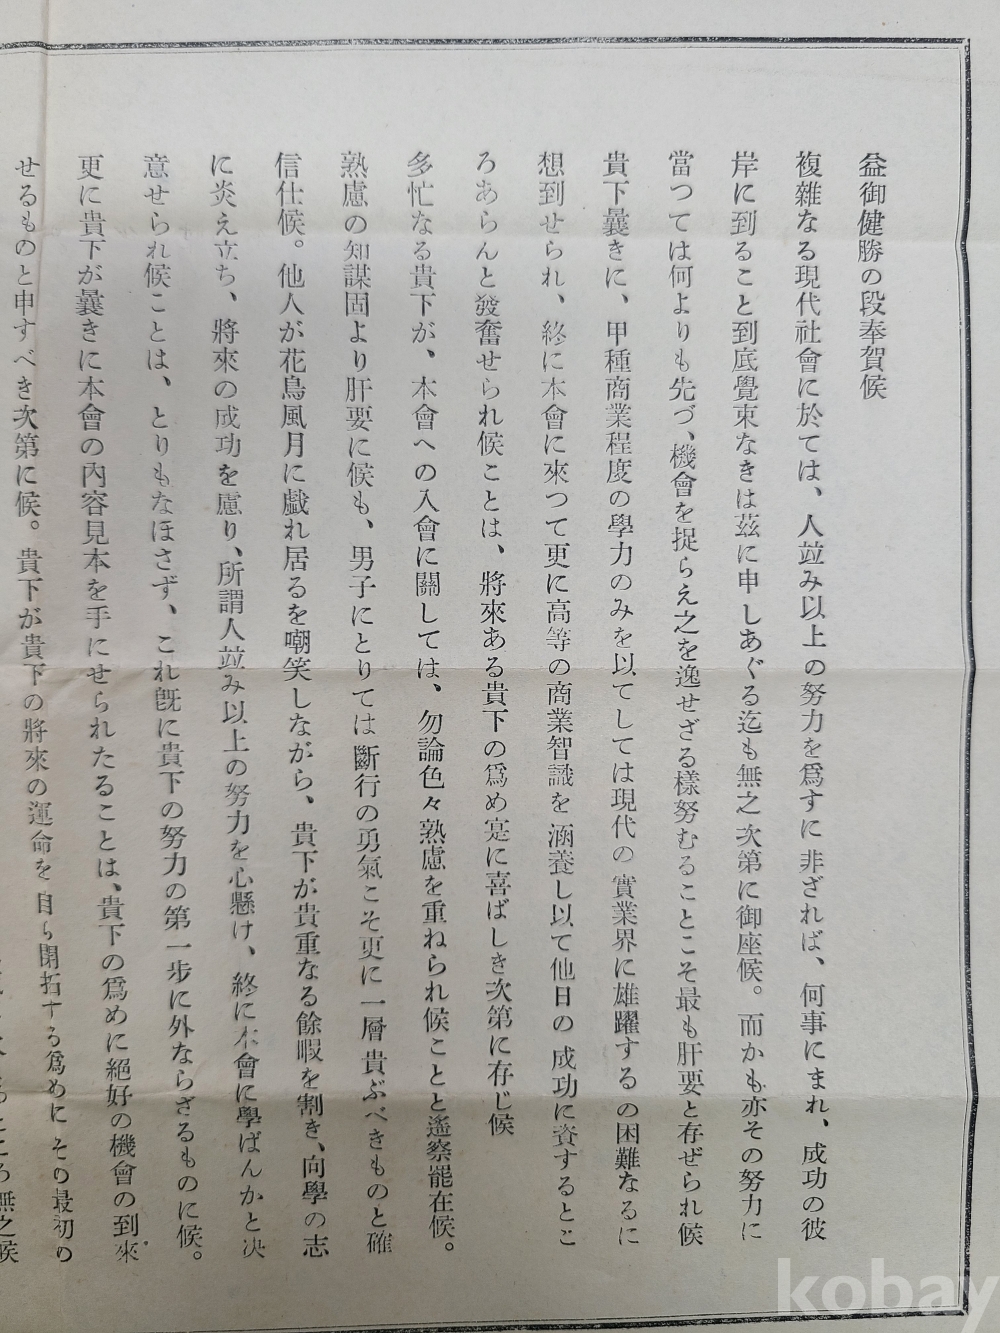 益御健勝の段奉賀候
複雜なる現代社會に於ては、人並み以上の努力を爲すに非ざれば、何事にまれ、成功の彼
岸に到ること到底覺束なきは茲に申しあぐる迄も無之次第に御座候。而かも亦その努力に
當つては何よりも先づ、機會を捉らえ之を逸せざる樣努むることこそ最も肝要と存ぜられ候
貴下曩きに、甲種商業程度の學力のみを以てしては現代の實業界に雄躍するの困難なるに
想到せられ、終に本會に來つて更に高等の商業智識を涵養し以て他日の成功に資するとこ
ろあらんと發奮せられ候ことは、將來ある貴下の爲め寔に喜ばしき次第に存じ候
多忙なる貴下が、本會への入會に關しては、勿論色々熟慮を重ねられ候ことと遙察罷在候。
熟慮の知謀固より肝要に候も、男子にとりては斷行の勇氣こそ更に一層貴ぶべきものと確
信仕候。他人が花鳥風月に戯れ居るを嘲笑しながら、貴下が貴重なる餘暇を割き、向學の志
に炎え立ち、將來の成功を慮り、所謂人並み以上の努力を心懸け、終に本會に學ばんかと决
意せられ候ことは、とりもなほさず、これ旣に貴下の努力の第一步に外ならざるものに候。
更に貴下が曩きに本會の內容見本を手にせられたることは、貴下の爲めに絕好の機會の到來
せるものと申すべき次第に候。貴下が貴下の將來の運命を自ら開拓する爲めにその最初の
無之候
kobay